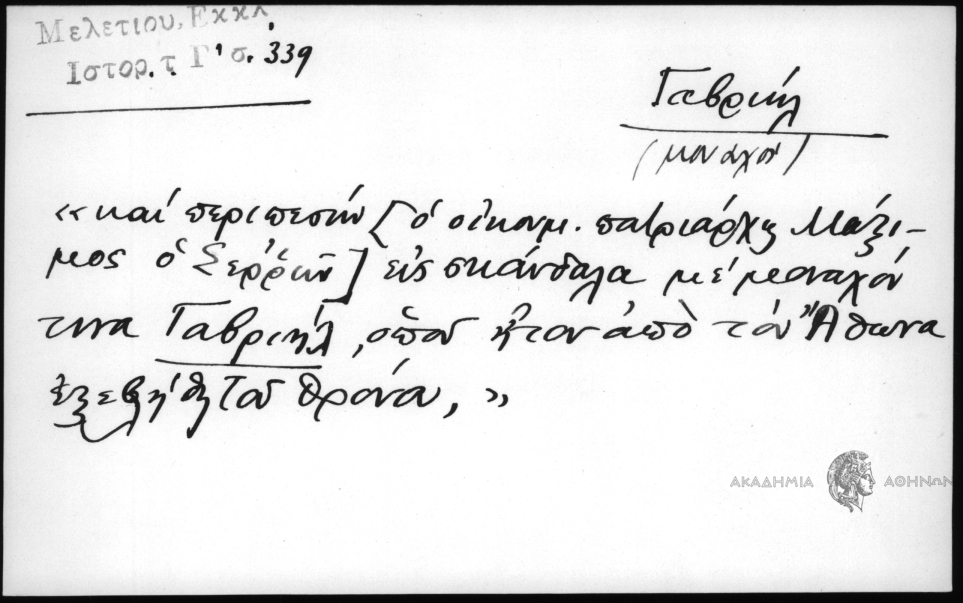 Μελετιου, Εκκλ.
Ιστορ. τ. Γ' σ. 339
Γαβριήλ
(μοναχός)
«καί περιπεσών [ὁ οἰκουμ. πατριάρχης Μάξι-
μος ὁ Σερρῶν] εἰς σκάνδαλα μέ μοναχόν
τινα Γαβριήλ, ὁποῦ ἦτον ἀπὸ τόν Ἄθωνα
ἐξεβλήθη τοῦ θρόνου, »
ΑΚΑΔΗΜΙΑ ΑΘΗΝΩΝ